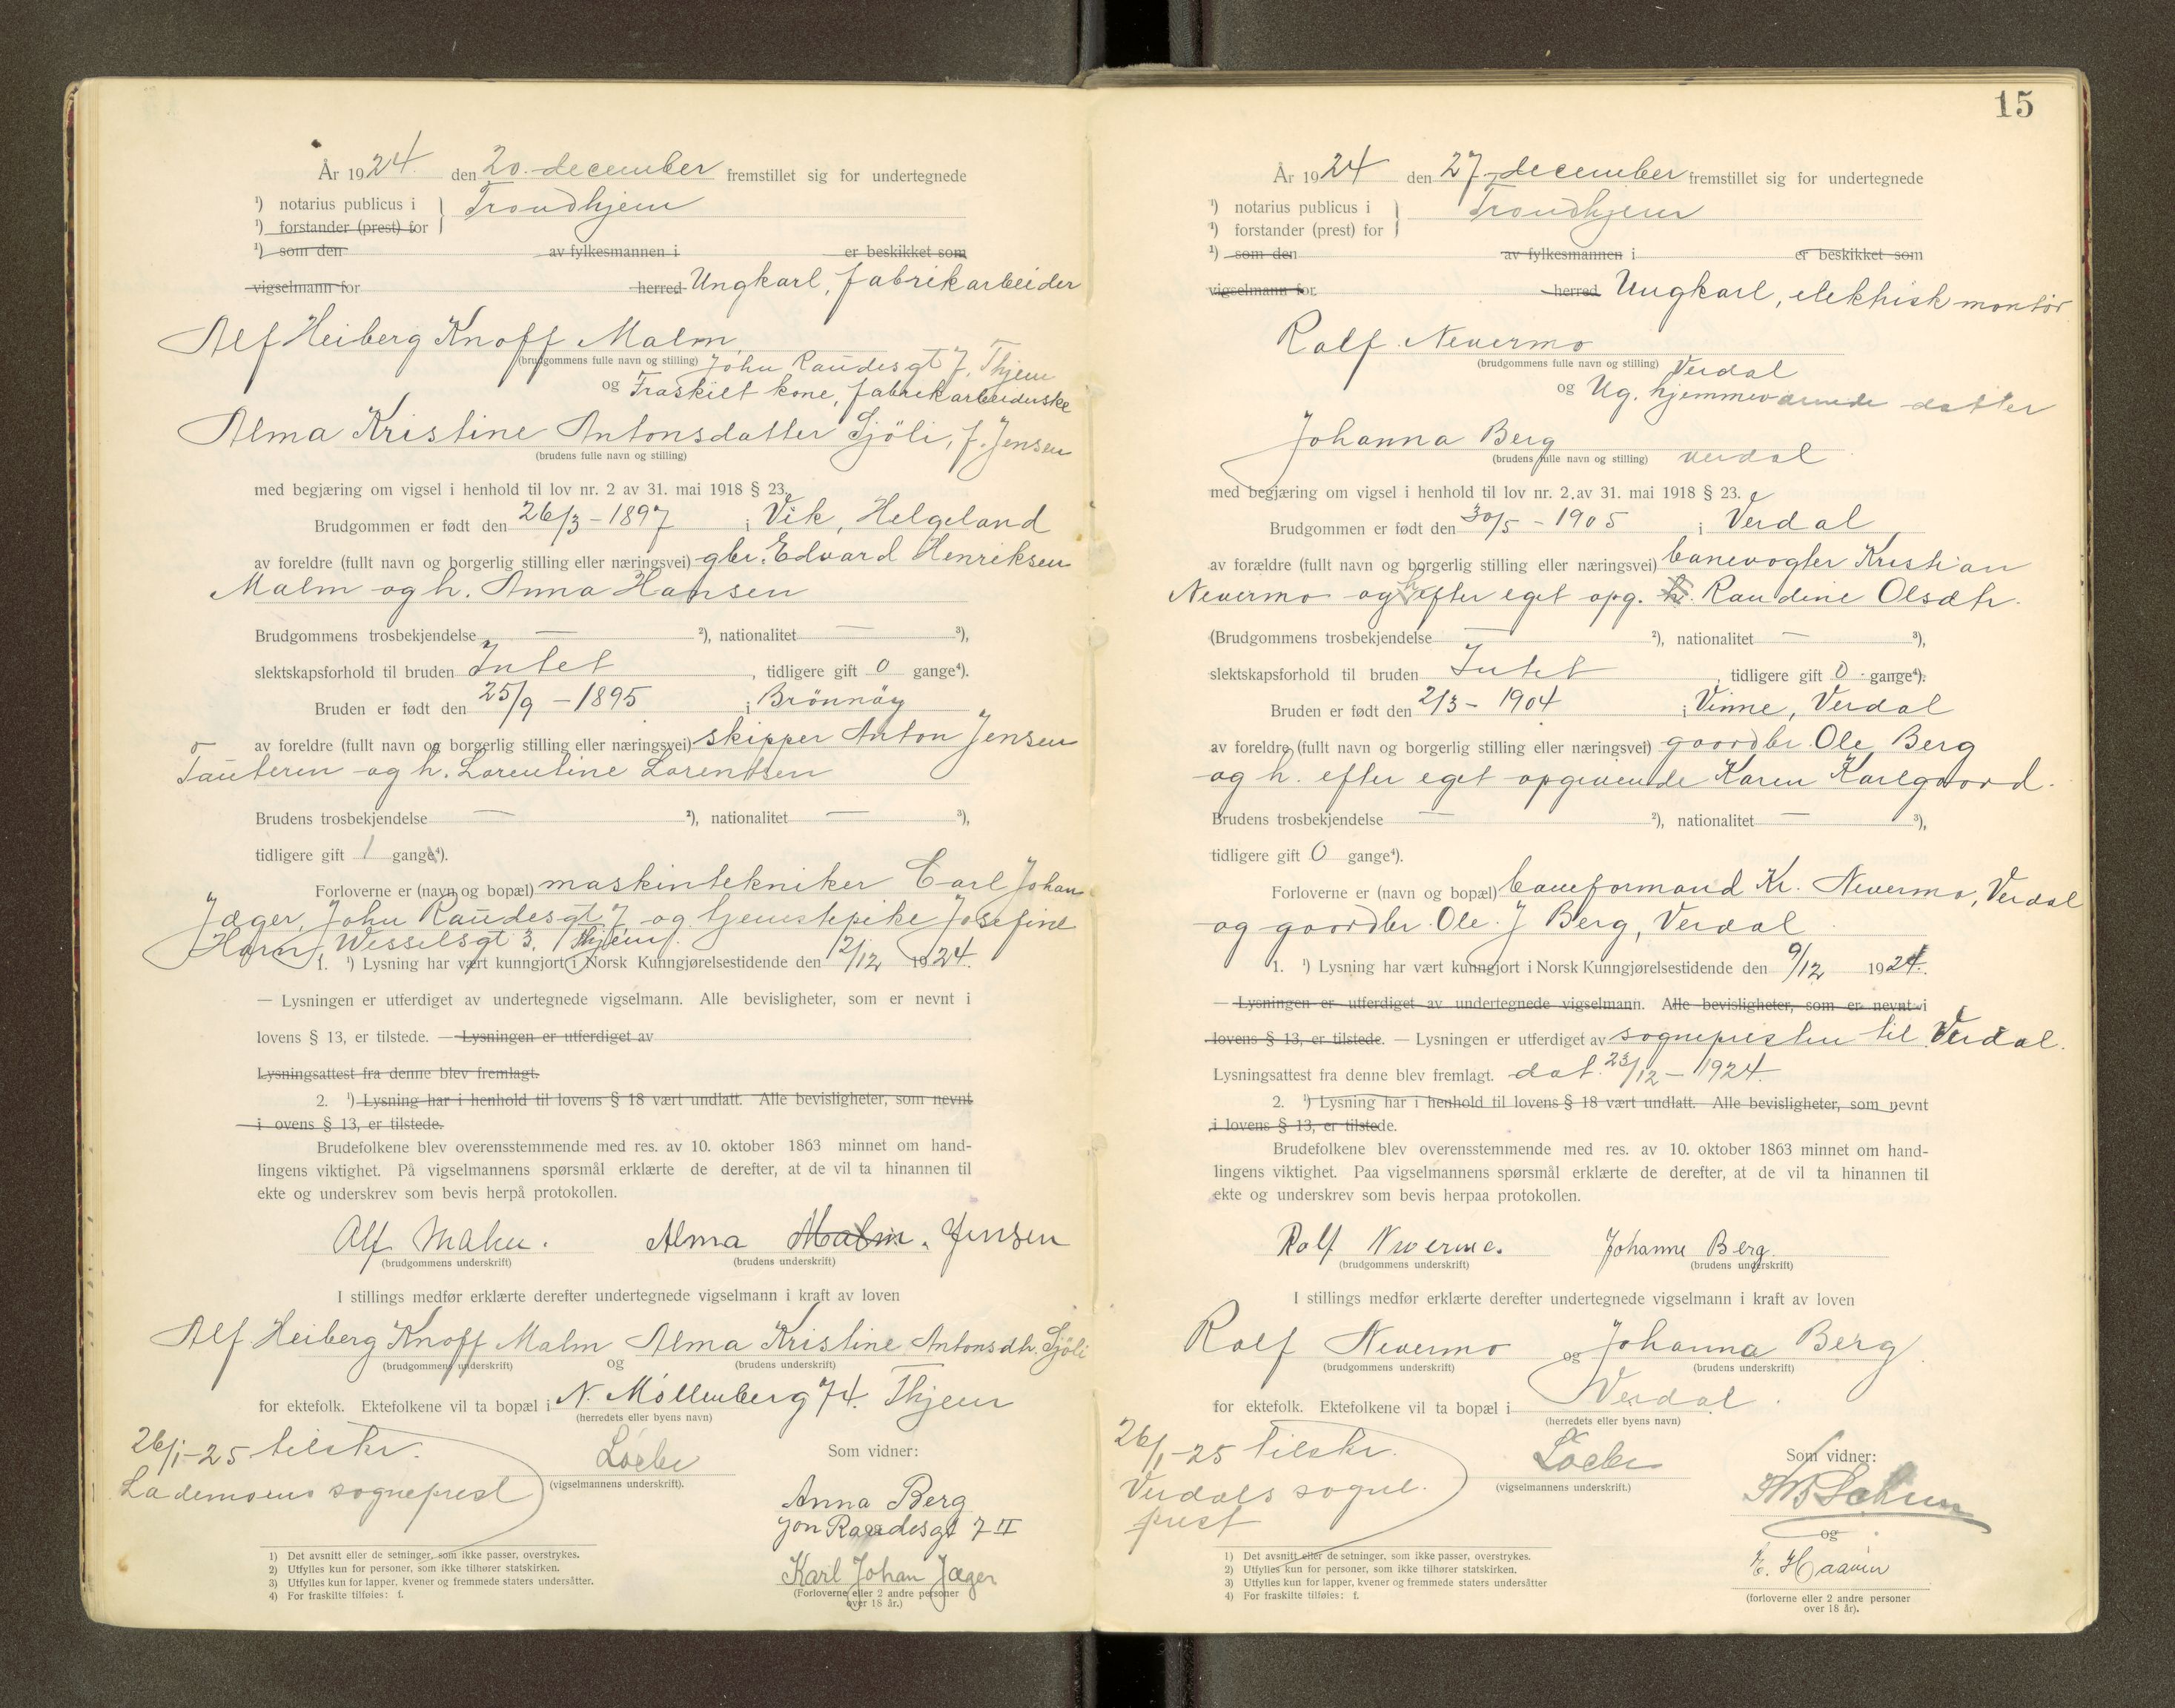 År 1924. den 20. december fremstillet sig for undertegnede
¹) notarius publicus i } Trondhjem
¹) forstander (prest) for
¹) som den av fylkesmannen i er beskikket som
vigselmann for herred Ungkarl, fabrikarbeider
Alf Heiberg Knoff Malm
(brudgommens fulle navn og stilling) John Raudesgt 7. Thjem
og Fraskilt kone, fabrikarbeiderske
Alma Kristine Antonsdatter Sjöli, f. Jensen
(brudens fulle navn og stilling)
med begjæring om vigsel i henhold til lov nr. 2 av 31. mai 1918 § 23.
Brudgommen er født den 26/3 - 1897 i Vik, Helgeland
av foreldre (fullt navn og borgerlig stilling eller næringsvei) gbr. Edvard Henriksen
Malm og h. Anna Hansen
Brudgommens trosbekjendelse — ²), nationalitet — ³),
slektskapsforhold til bruden Intet, tidligere gift 0 gange⁴).
Bruden er født den 25/9 - 1895 i Brönnöy
av foreldre (fullt navn og borgerlig stilling eller næringsvei) skipper Anton Jensen
og h. Lorentine Lorentsen
Brudens trosbekjendelse — ²), nationalitet — ³),
tidligere gift 1 gange⁴).
Forloverne er (navn og bopæl) maskintekniker Carl Johan
Jæger, John Raudesgt 7 og tjenestepike Josefine
Horn, Wesselsgt 3. Thjem.
1. ¹) Lysning har vært kunngjort i Norsk Kunngjørelsestidende den 12/12 1924.
— Lysningen er utferdiget av undertegnede vigselmann. Alle bevisligheter, som er nevnt i
lovens § 13, er tilstede. — Lysningen er utferdiget av
Lysningsattest fra denne blev fremlagt.
2. ¹) Lysning har i henhold til lovens § 18 vært undlatt. Alle bevisligheter, som nevnt
i ovens § 13, er tilstede.
Brudefolkene blev overensstemmende med res. av 10. oktober 1863 minnet om hand-
lingens viktighet. På vigselmannens spørsmål erklærte de derefter, at de vil ta hinannen til
ekte og underskrev som bevis herpå protokollen.
Alf Malm. Alma Malm. Jensen
(brudgommens underskrift) (brudens underskrift)
I stillings medfør erklærte derefter undertegnede vigselmann i kraft av loven
Alf Heiberg Knoff Malm og Alma Kristine Antonsdtr. Sjöli
(brudgommens underskrift) (brudens underskrift)
for ektefolk. Ektefolkene vil ta bopæl i N. Möllenberg 74. Thjem
(herredets eller byens navn)
26/1-25 tilskr.
Lademoens sogneprest
(vigselmannens underskrift).
Som vidner:
Anna Berg
Jon Raudesgt 7 II
Karl Johan Jæger
(Forloverne eller 2 andre personer
over 18 år.)
1) Det avsnitt eller de setninger, som ikke passer, overstrykes.
2) Utfylles kun for personer, som ikke tilhører statskirken.
3) Utfylles kun for lapper, kvener og fremmede staters undersåtter.
4) For fraskilte tilføies: f.
15
År 1924 den 27. december fremstillet sig for undertegnede
¹) notarius publicus i } Trondhjem
¹) forstander (prest) for
¹) som den av fylkesmannen i er beskikket som
vigselmann for herred Ungkarl, elektrisk montör
Rolf Nevermo
(brudgommens fulle navn og stilling) Verdal
og Ug. hjemmeværende datter
Johanna Berg
(brudens fulle navn og stilling) Verdal
med begjæring om vigsel i henhold til lov nr. 2.av 31. mai 1918 § 23.
Brudgommen er født den 30/5 - 1905 i Verdal
av forældre (fullt navn og borgerlig stilling eller næringsvei) banevogter Kristian
Nevermo og h. efter eget opg. Randine Olsdtr.
(Brudgommens trosbekjendelse — ²), nationalitet — ³),
slektskapsforhold til bruden Intet, tidligere gift 0 gange⁴).
Bruden er født den 2/3 - 1904 i Vinne, Verdal
av foreldre (fullt navn og borgerlig stilling eller næringsvei) gaardbr. Ole Berg
og h. efter eget opgivende Karen Karlgaard.
Brudens trosbekjendelse — ²), nationalitet — ³),
tidligere gift 0 gange⁴).
Forloverne er (navn og bopæl) baneformand Kr. Nevermo, Verdal
og gaardbr. Ole J Berg, Verdal
1. ¹) Lysning har vært kunngjort i Norsk Kunngjørelsestidende den 9/12 1924.
— Lysningen er utferdiget av undertegnede vigselmann. Alle bevisligheter, som er nevnt i
lovens § 13, er tilstede. — Lysningen er utferdiget av sognepresten til Verdal.
Lysningsattest fra denne blev fremlagt. dat. 23/12 - 1924.
2. ¹) Lysning har i henhold til lovens § 18 vært undlatt. Alle bevisligheter, som nevnt
i lovens § 13, er tilstede.
Brudefolkene blev overensstemmende med res. av 10. oktober 1863 minnet om hand-
lingens viktighet. Paa vigselmannens spørsmål erklærte de derefter, at de vil ta hinannen til
ekte og underskrev som bevis herpaa protokollen.
Rolf Nevermo. Johanne Berg.
(brudgommens underskrift) (brudens underskrift)
I stillings medfør erklærte derefter undertegnede vigselmann i kraft av loven
Rolf Nevermo og Johanna Berg
(brudgommens underskrift) (brudens underskrift)
for ektefolk. Ektefolkene vil ta bopæl i Verdal.
(herredets eller byens navn)
26/1-25 tilskr.
Verdals sogne-
prest
(vigselmannens underskrift.)
Som vidner:
og
(forloverne eller 2 andre personer
over 18 år).
1) Det avsnitt eller de setninger, som ikke passer, overstrykes.
2) Utfylles kun for personer, som ikke tilhører statskirken.
3) Utfylles kun for lapper, kvener og fremmede staters undersåtter
4) For fraskilte tilføies: f.